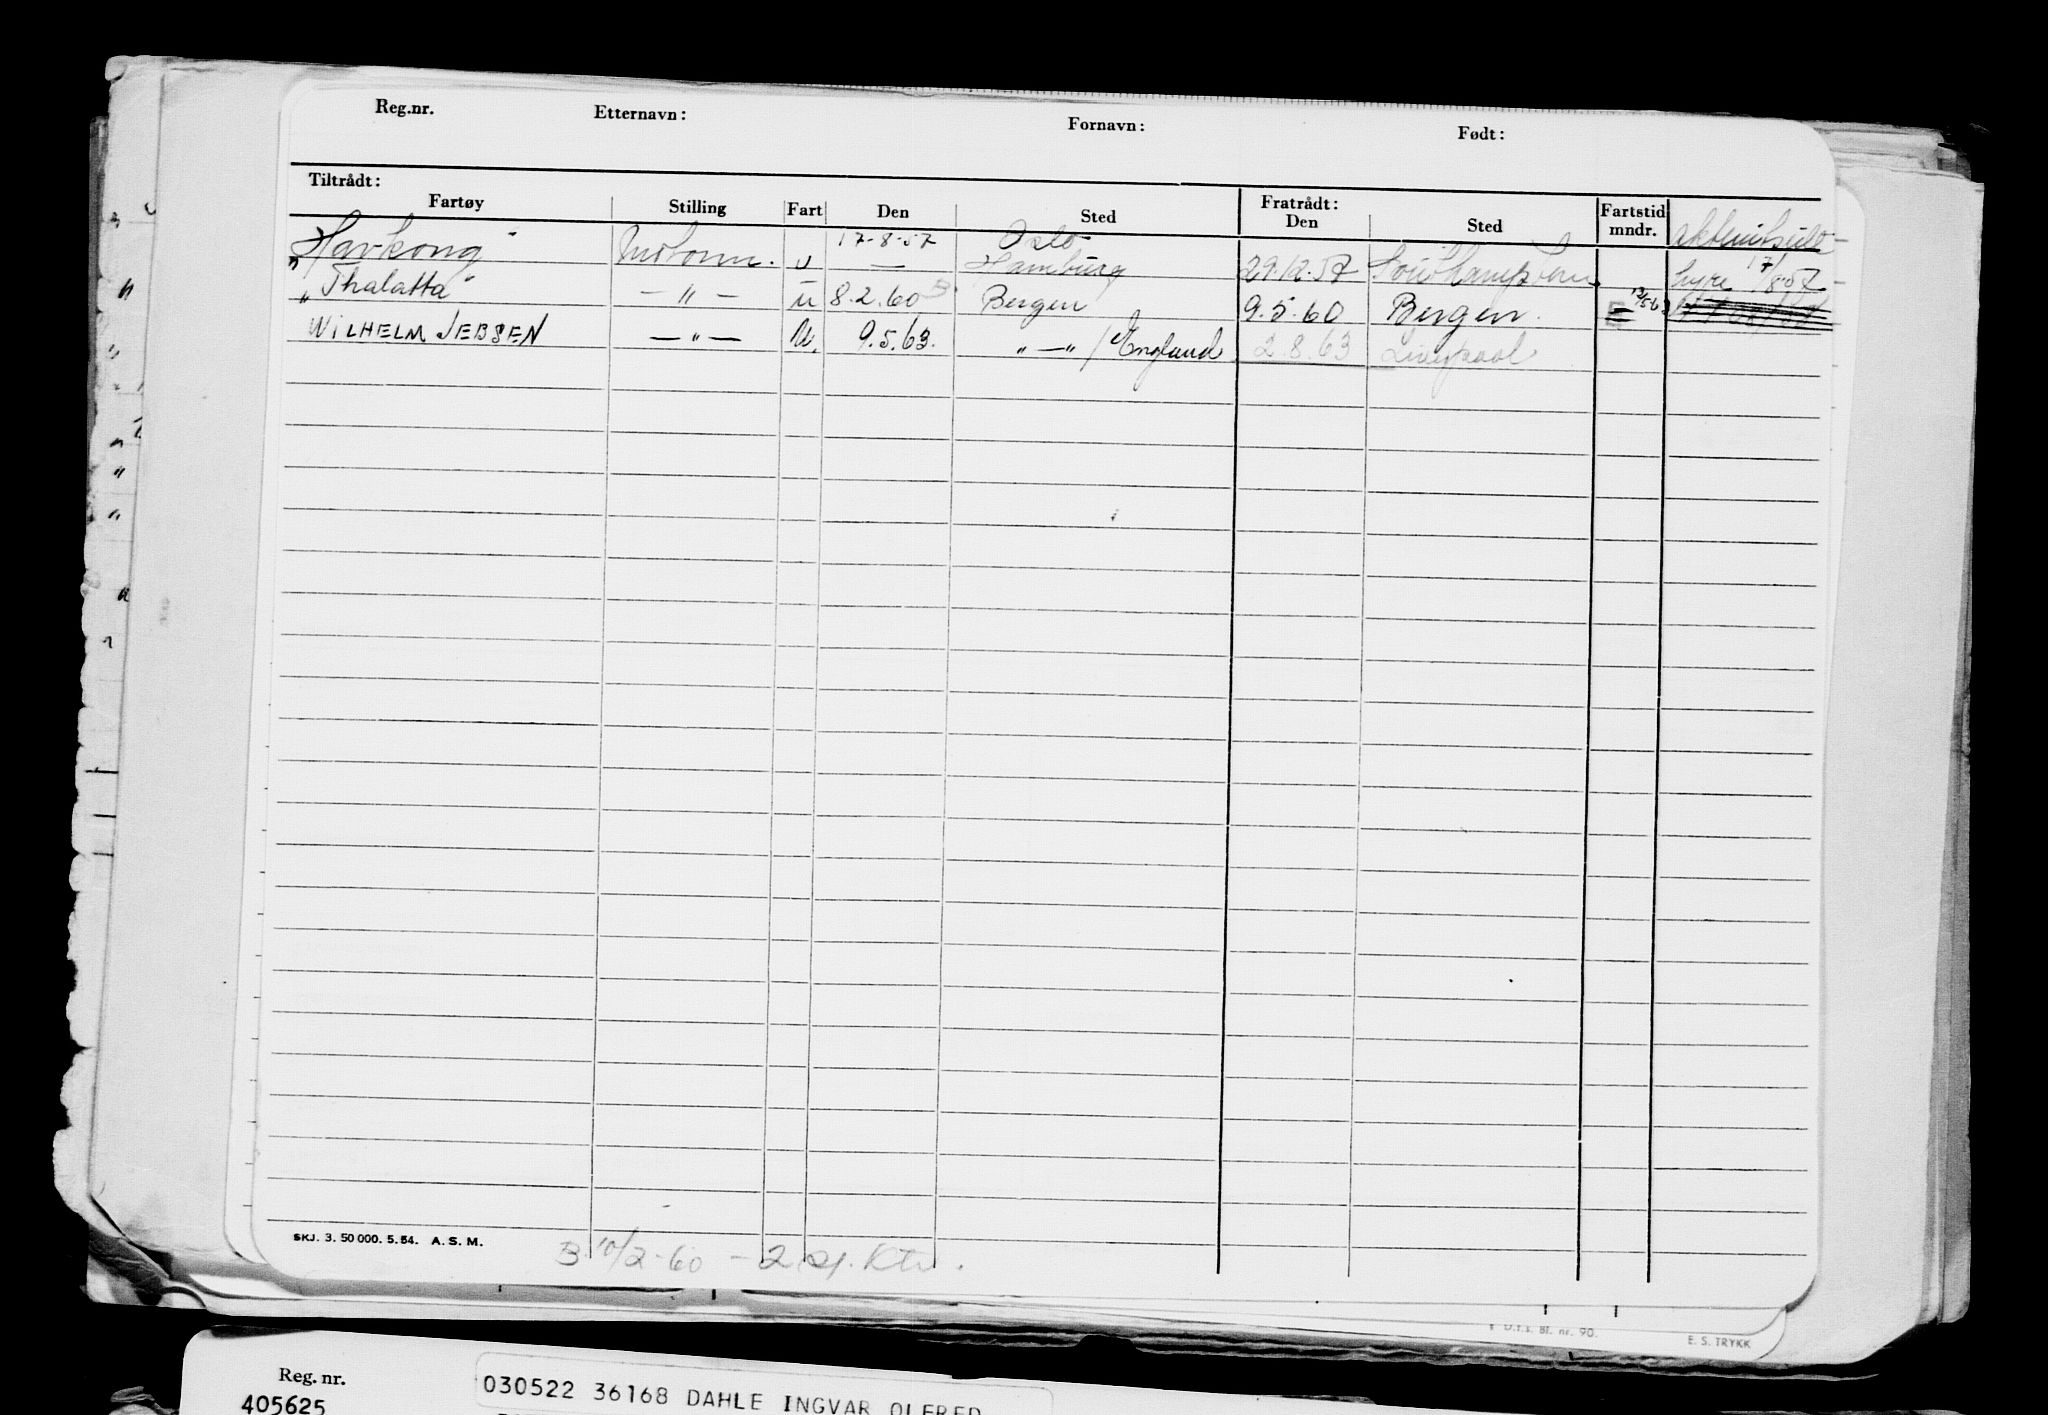 Reg.nr. Etternavn: Fornavn: Født:
Tiltrådt: Fratrådt:
Fartøy Stilling Fart Den Sted Den Sted Fartstid mndr.
17-8-57 Oslo
"Havkong" Motorm. u — Hamburg 29.12.57 Southampton hyre 17/8-57
"Thalatta" — " — u 8.2.60 B Bergen 9.5.60 Bergen. E
WILHELM JEBSEN — " — U. 9.5.63. " — " / England 2.8.63 Liverpool
SKJ. 3. 50 000. 5. 54. A. S. M.
B. 10/2-60 - 2
Bl. nr. 90.
E. S. TRYKK
Reg. nr.
405625
030522 36168 DAHLE INGVAR OLFRED